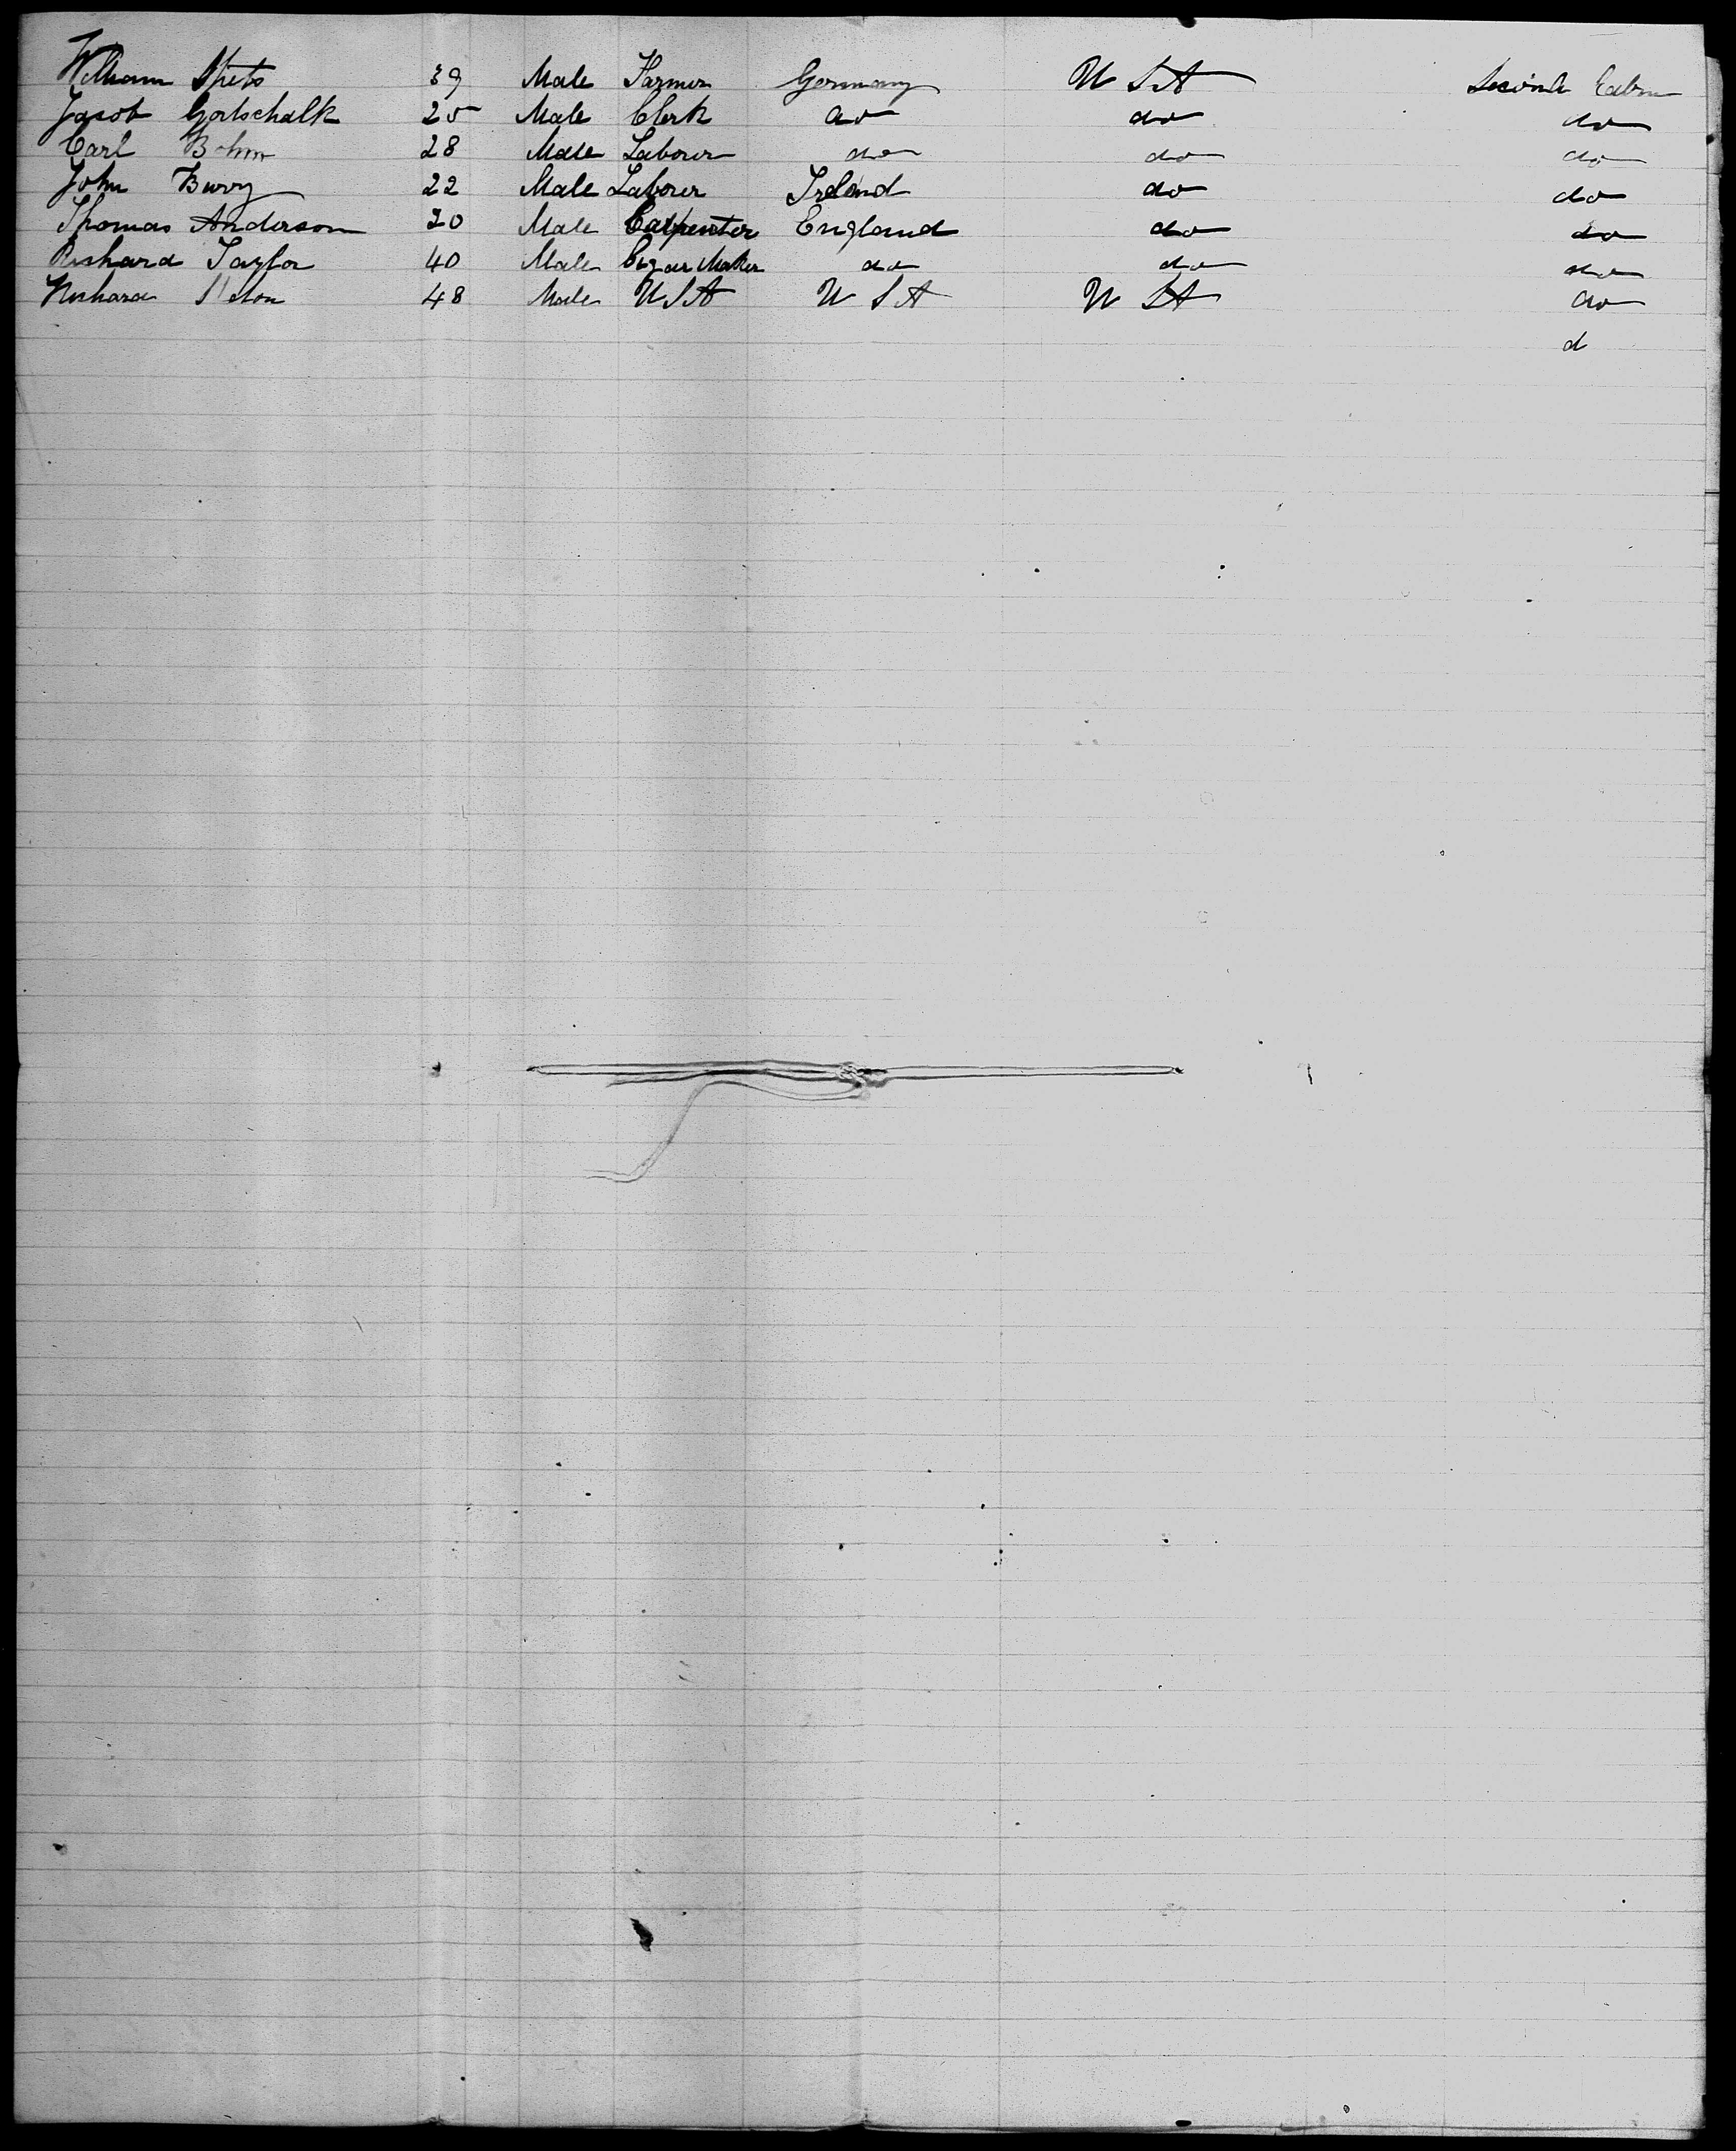 William Spets 39 Male Farmer Germany U S A Second Cabin
Jacob Gottschalk 25 Male Clerk do do do
Carl Bohm 28 Male Labourer do do do
John Burry 22 Male Labourer Ireland do do
Thomas Anderson 20 Male Carpenter England do do
Richard Taylor 40 Male Cigar Maker do do do
48 Male U S A U S A U S A do
d